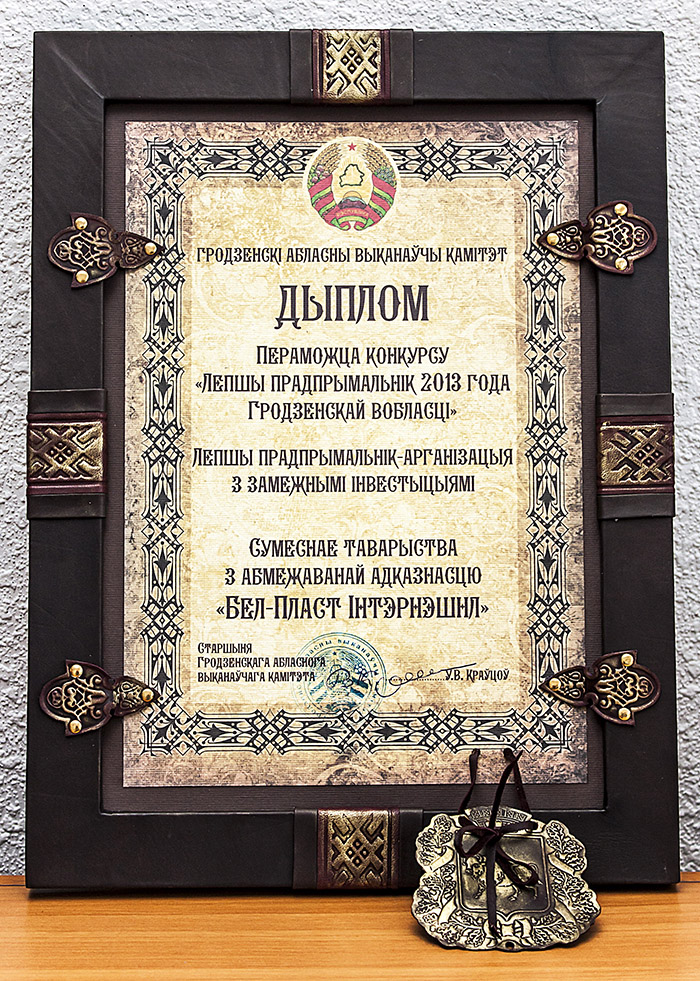 ГРОДЗЕНСКІ АБЛАСНЫ ВЫКАНАЎЧЫ КАМІТЭТ
ДЫПЛОМ
ПЕРАМОЖЦА КОНКУРСУ
«ЛЕПШЫ ПРАДПРЫМАЛЬНІК 2013 ГОДА
ГРОДЗЕНСКАЙ ВОБЛАСЦІ»
ЛЕПШЫ ПРАДПРЫМАЛЬНІК-АРГАНІЗАЦЫЯ
З ЗАМЕЖНЫМІ ІНВЕСТЫЦЫЯМІ
СУМЕСНАЕ ТАВАРЫСТВА
З АБМЕЖАВАНАЙ АДКАЗНАСЦЮ
«БЕЛ-ПЛАСТ ІНТЭРНЭШНЛ»
СТАРШЫНЯ
ГРОДЗЕНСКАГА АБЛАСНОГА
ВЫКАНАЎЧАГА КАМІТЭТА У.В. КРАЎЦОЎ